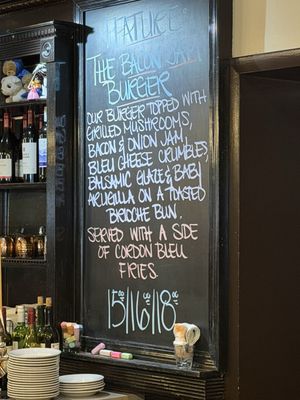 FEATURE:
THE BACON JAM
BURGER
OUR BURGER TOPPED WITH
GRILLED MUSHROOMS,
BACON & ONION JAM,
BLEU CHEESE CRUMBLES,
BALSAMIC GLAZE & BABY
ARUGULA ON A TOASTED
BRIOCHE BUN.
SERVED WITH A SIDE
OF CORDON BLEU
FRIES.
15|16|18